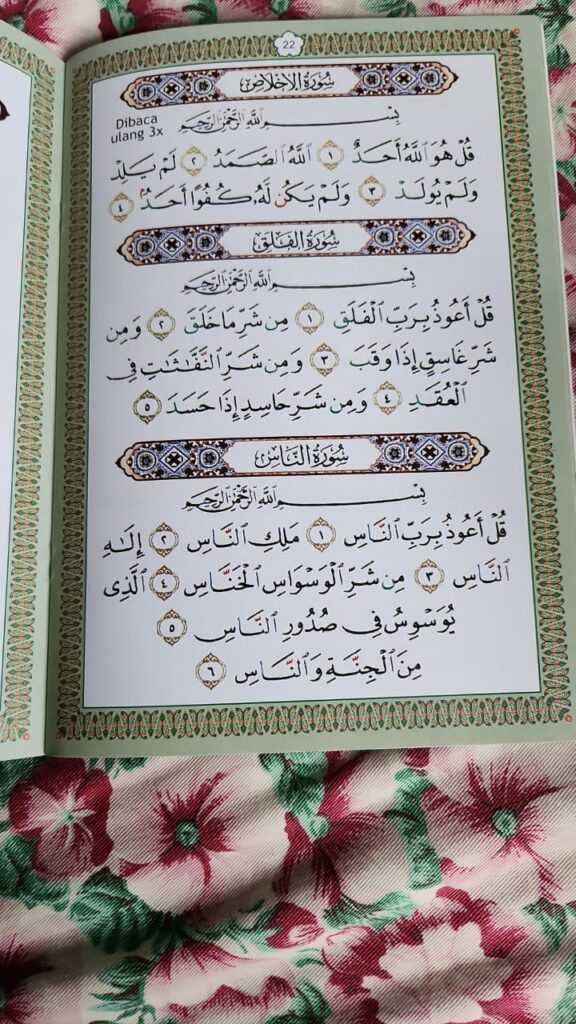 22
سُورَةُ الْاِخْلَاصِ
Dibaca
ulang 3x
بِسْمِ اللَّهِ الرَّحْمَٰنِ الرَّحِيمِ
قُلْ هُوَ اللَّهُ أَحَدٌ ١ اللَّهُ الصَّمَدُ ٢ لَمْ يَلِدْ
وَلَمْ يُولَدْ ٣ وَلَمْ يَكُن لَّهُۥ كُفُوًا أَحَدٌۢ ٤
سُورَةُ الْفَلَقِ
بِسْمِ اللَّهِ الرَّحْمَٰنِ الرَّحِيمِ
قُلْ أَعُوذُ بِرَبِّ الْفَلَقِ ١ مِن شَرِّ مَا خَلَقَ ٢ وَمِن
شَرِّ غَاسِقٍ إِذَا وَقَبَ ٣ وَمِن شَرِّ النَّفَّٰثَٰتِ فِي
الْعُقَدِ ٤ وَمِن شَرِّ حَاسِدٍ إِذَا حَسَدَ ٥
سُورَةُ النَّاسِ
بِسْمِ اللَّهِ الرَّحْمَٰنِ الرَّحِيمِ
قُلْ أَعُوذُ بِرَبِّ النَّاسِ ١ مَلِكِ النَّاسِ ٢ إِلَٰهِ
النَّاسِ ٣ مِن شَرِّ الْوَسْوَاسِ الْخَنَّاسِ ٤ الَّذِي
يُوَسْوِسُ فِي صُدُورِ النَّاسِ ٥
مِنَ الْجِنَّةِ وَالنَّاسِ ٦